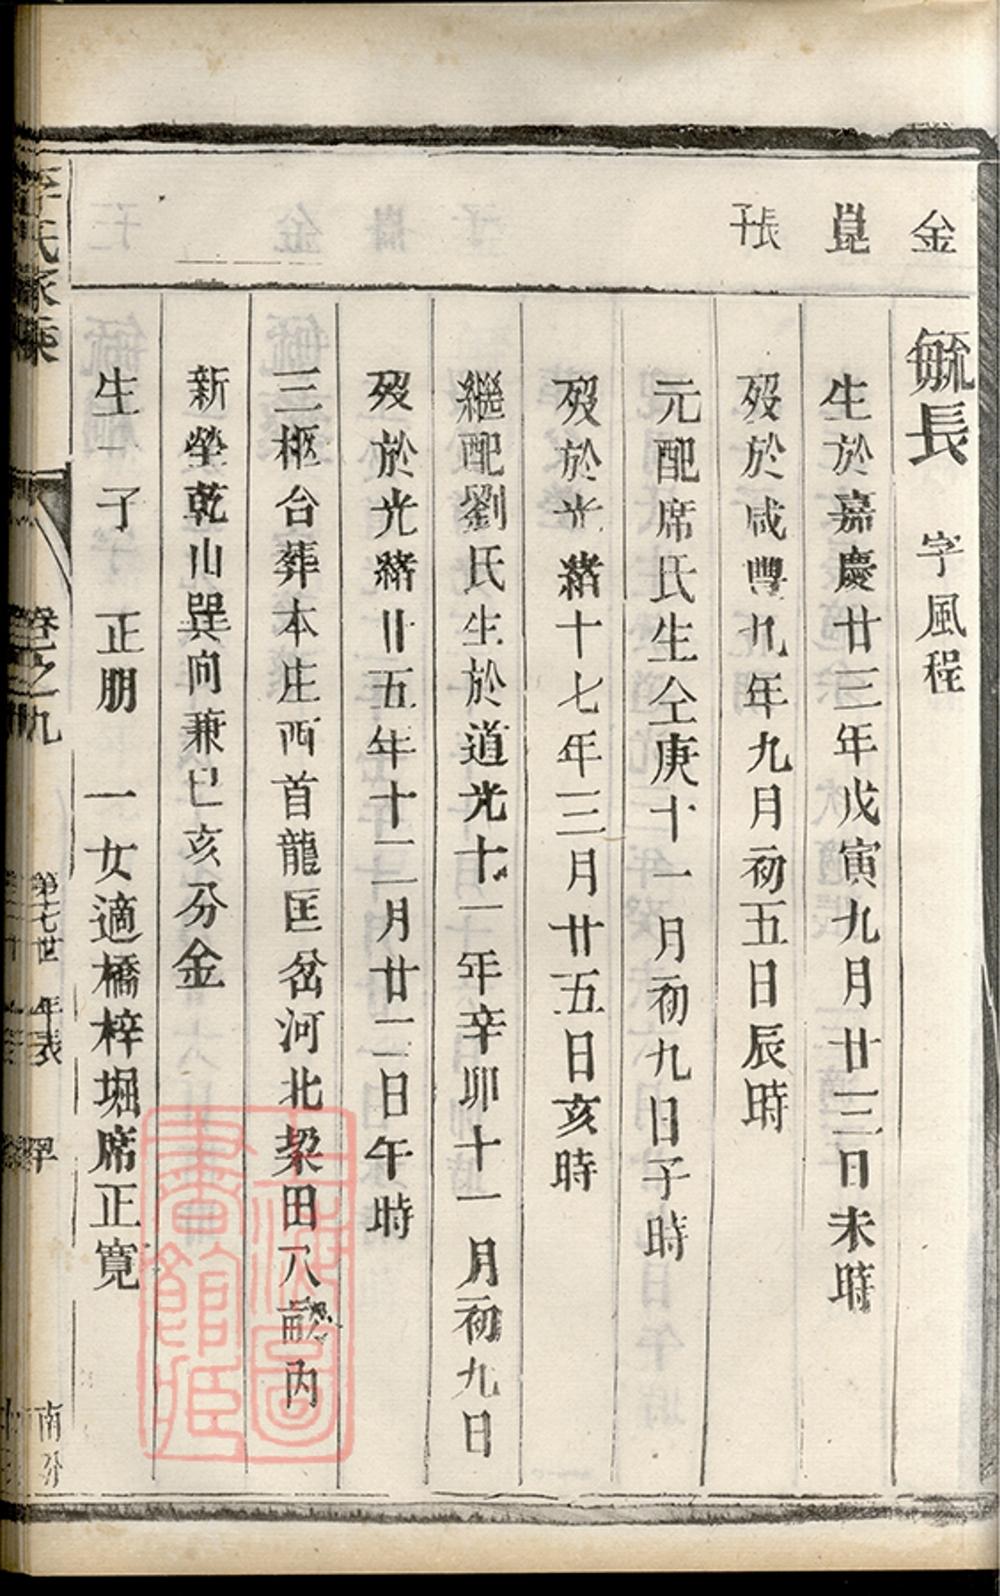 金
崑
長子
毓長 字風程
生於嘉慶廿三年戊寅九月廿三日未時
歿於咸豐九年九月初五日辰時
元配席氏生仝庚十一月初九日子時
歿於光緒十七年三月廿五日亥時
繼配劉氏生於道光十一年辛卯十一月初九日
歿於光緒廿五年十二月廿二日午時
三柩合葬本庄西首龍匡岔河北梨田八畝內
新塋乾山巽向兼巳亥分金
生一子 正朋 一女適橋梓堀席正寬
李氏家乘
卷之九
第七世 年表
南分
上海圖書館藏